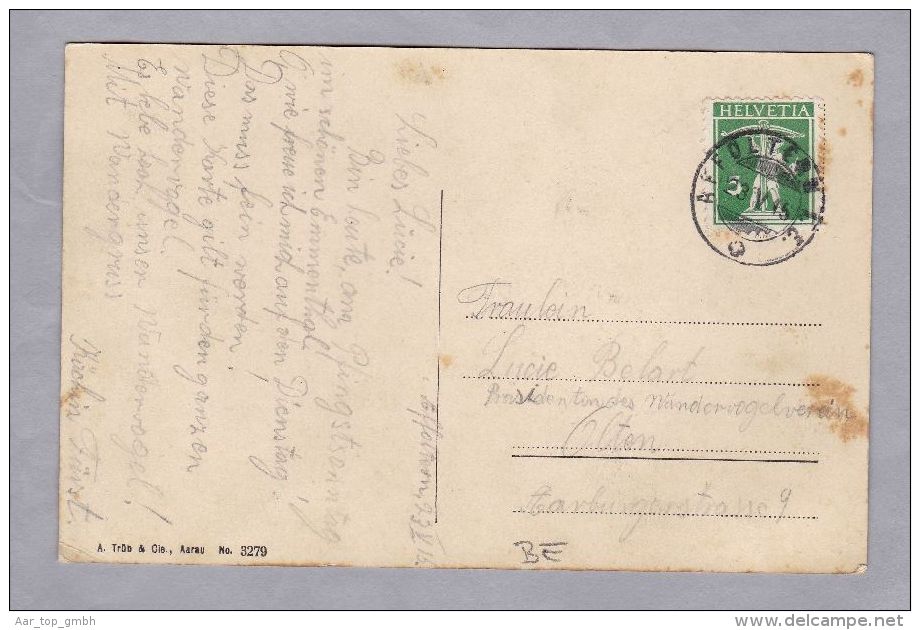 HELVETIA
5
AFFOLTERN
Affoltern, 23 V 15
Liebes Lucie!
Bin heute, am Pfingstsonntag
im schönen Emmenthal.
freue ich mich auf den Dienstag!
Das muss fein werden.
Diese Karte gilt für den ganzen
Wandervogel.
Es lebe hoch unser Wandervogel!
Mit Wandergruss
Fürst.
Fräulein
Lucie Belart
Präsidentin des Wandervogelverein
Olten
Aarburgerstrasse 9
BE
A. Trüb & Cie., Aarau No. 3279
Aar_top_gmbh
www.delcampe.net